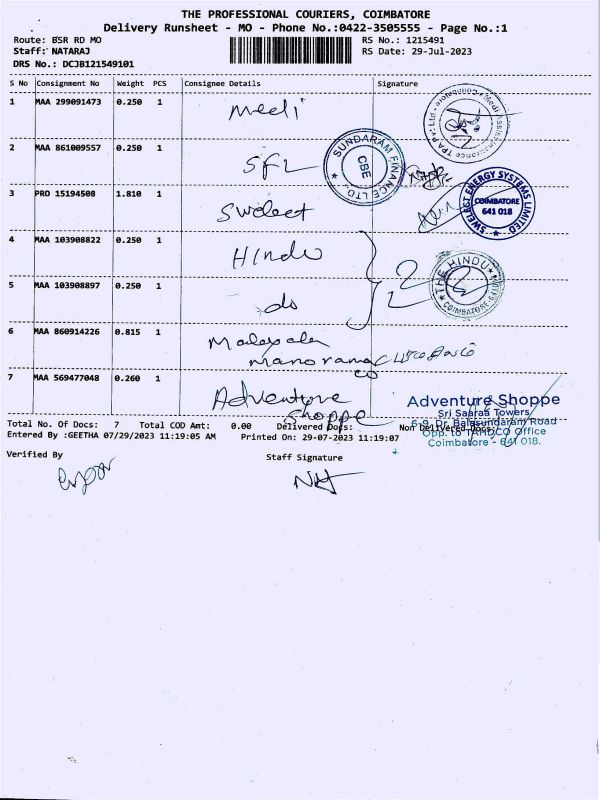 THE PROFESSIONAL COURIERS, COIMBATORE
Delivery Runsheet - MO - Phone No.:0422-3505555 - Page No.:1
Route: BSR RD MO
RS No.: 1215491
Staff: NATARAJ
RS Date: 29-Jul-2023
DRS No.: DCJB121549101
S No Consignment No Weight PCS Consignee Details Signature
1 MAA 299091473 0.250 1 Medi
2 MAA 861009557 0.250 1 SFL
SUNDARAM FINANCE LTD. CBE
3 PRO 15194508 1.810 1 Swelect
SWELECT ENERGY SYSTEMS LIMITED
COIMBATORE
641 018
4 MAA 103908822 0.250 1 Hindu
THE HINDU
COIMBATORE
5 MAA 103908897 0.250 1 do
6 MAA 860914226 0.815 1 Malayala
manorama
co
7 MAA 569477048 0.260 1 Adventure
Shoppe
Adventure Shoppe
Sri Saaraa Towers
6-9, Dr. Balasundaram Road
Opp. to TAHDCO Office
Coimbatore - 641 018.
Total No. Of Docs: 7 Total COD Amt: 0.00 Delivered Docs: Non Delivered Docs:
Entered By :GEETHA 07/29/2023 11:19:05 AM Printed On: 29-07-2023 11:19:07
Verified By
Staff Signature